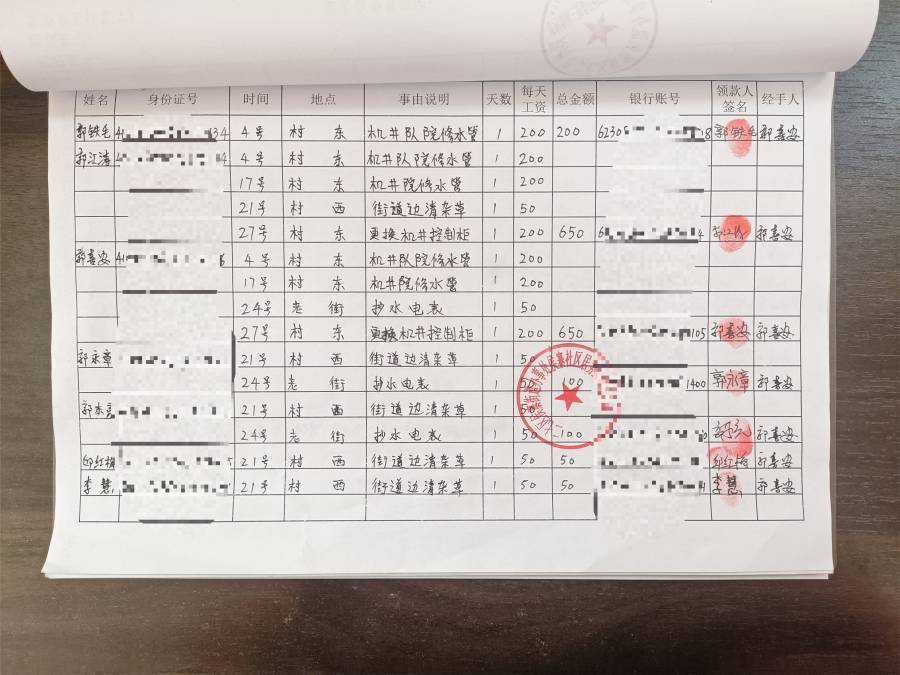 姓名 身份证号 时间 地点 事由说明 天数 每天工资 总金额 银行账号 领款人签名 经手人
郭铁毛 4 34 4号 村东 机井队院修水管 1 200 200 6230 18 郭铁毛 郭喜安
郭江涛 4 4 4号 村东 机井队院修水管 1 200
17号 村东 机井院修水管 1 200
21号 村西 街道边清杂草 1 50
27号 村东 更换机井控制柜 1 200 650 6 4 郭喜安
郭喜安 41 6 4号 村东 机井队院修水管 1 200
17号 村东 机井院修水管 1 200
24号 老街 抄水电表 1 50
27号 村东 更换机井控制柜 1 200 650 105 郭喜安 郭喜安
郭永章 21号 村西 街道边清杂草 1 50
24号 老街 抄水电表 1 50 100 1400 郭永章 郭喜安
21号 村西 街道边清杂草 1 50
24号 老街 抄水电表 1 50 100 郭喜安
邱红梅 21号 村西 街道边清杂草 1 50 50 邱红梅 郭喜安
李慧 21号 村西 街道边清杂草 1 50 50 李慧 郭喜安